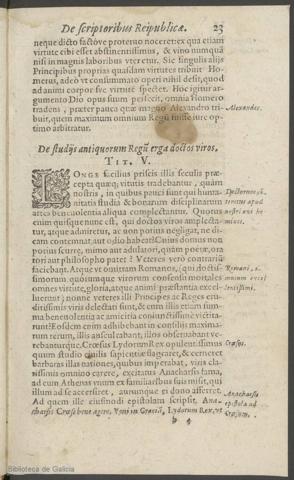 De scriptoribus Reipublicæ. 23
neque dicto factóve proteruo noceret: ex qua etiam
virtute cibi esset abstinentissimus, & vino nunquã
nisi in magnis laboribus vteretur. Sic singulis alijs
Principibus proprias quasdam virtutes tribuit Ho-
merus, adeò vt consummato operi nihil desit, quod
ad animi corporísve virtutẽ spectet. Hoc igitur ar-
gumento Dio opus suum perfecit, omnia Homero
tradens, præter pauca quæ magno Alexandro tri-
buit, quem maximum omnium Regũ fuisse iure op-
timo arbitratur.
Alexander.
De studijs antiquorum Regũ erga doctos viros.
TIT. V.
LONGE fœcilius priscis illis seculis præ-
cepta quæq; virtutis tradebantur, quàm
nostris, in quibus pauci sunt qui huma-
nitatis studia & bonarum disciplinarum
artes beneuolentia aliqua complectantur. Quotus
enim quisque nunc est, qui doctos viros amplecta-
tur, atque admiretur, ac non potius negligat, ne di-
cam contemnat, aut odio habeat? Cuius domus non
potius scurrę, mimo aut adulatori, quàm poetæ, ora
tori aut philosopho patet? Veteres verò contrarià
faciebant. Atque vt omittam Romanos, (qui doctis-
simorum quorumque virorum consensu mortales
omnes virtute, gloria, atque animi præstantia excel-
luerunt) nonne veteres illi Principes ac Reges eru-
ditissimis viris delectati sunt, & cum illis etiam sum-
ma beneuolentia ac amicitia coniunctissimè victita-
runt? Eosdem enim adhibebant in consilijs maxima-
rum rerum, illis ausculrabant, illos obseruabant ve-
nerabanturque. Crœsus Lydorum Rex opulentissimus
quum studio
Romani, o-
mnium excel
lentissimi.
Crœsus.
sapientiæ flagraret, & cerneret
barbaras illas nationes, quibus imperabat, viris cla-
rissimis omnino carere, excitato Anacharsis fama,
ad eum Athenas vnum ex familiaribus suis misit, qui
illum ad se accerseret, aurumque ei dono afferret.
Ad quem ille eiusmodi epistolam scripsit. Ana-
charsis Crœso bene agere. Veni in Græciã, Lydorum Rex, vt
Anacharsis
epistola ad
Crœsum.
Biblioteca de Galicia